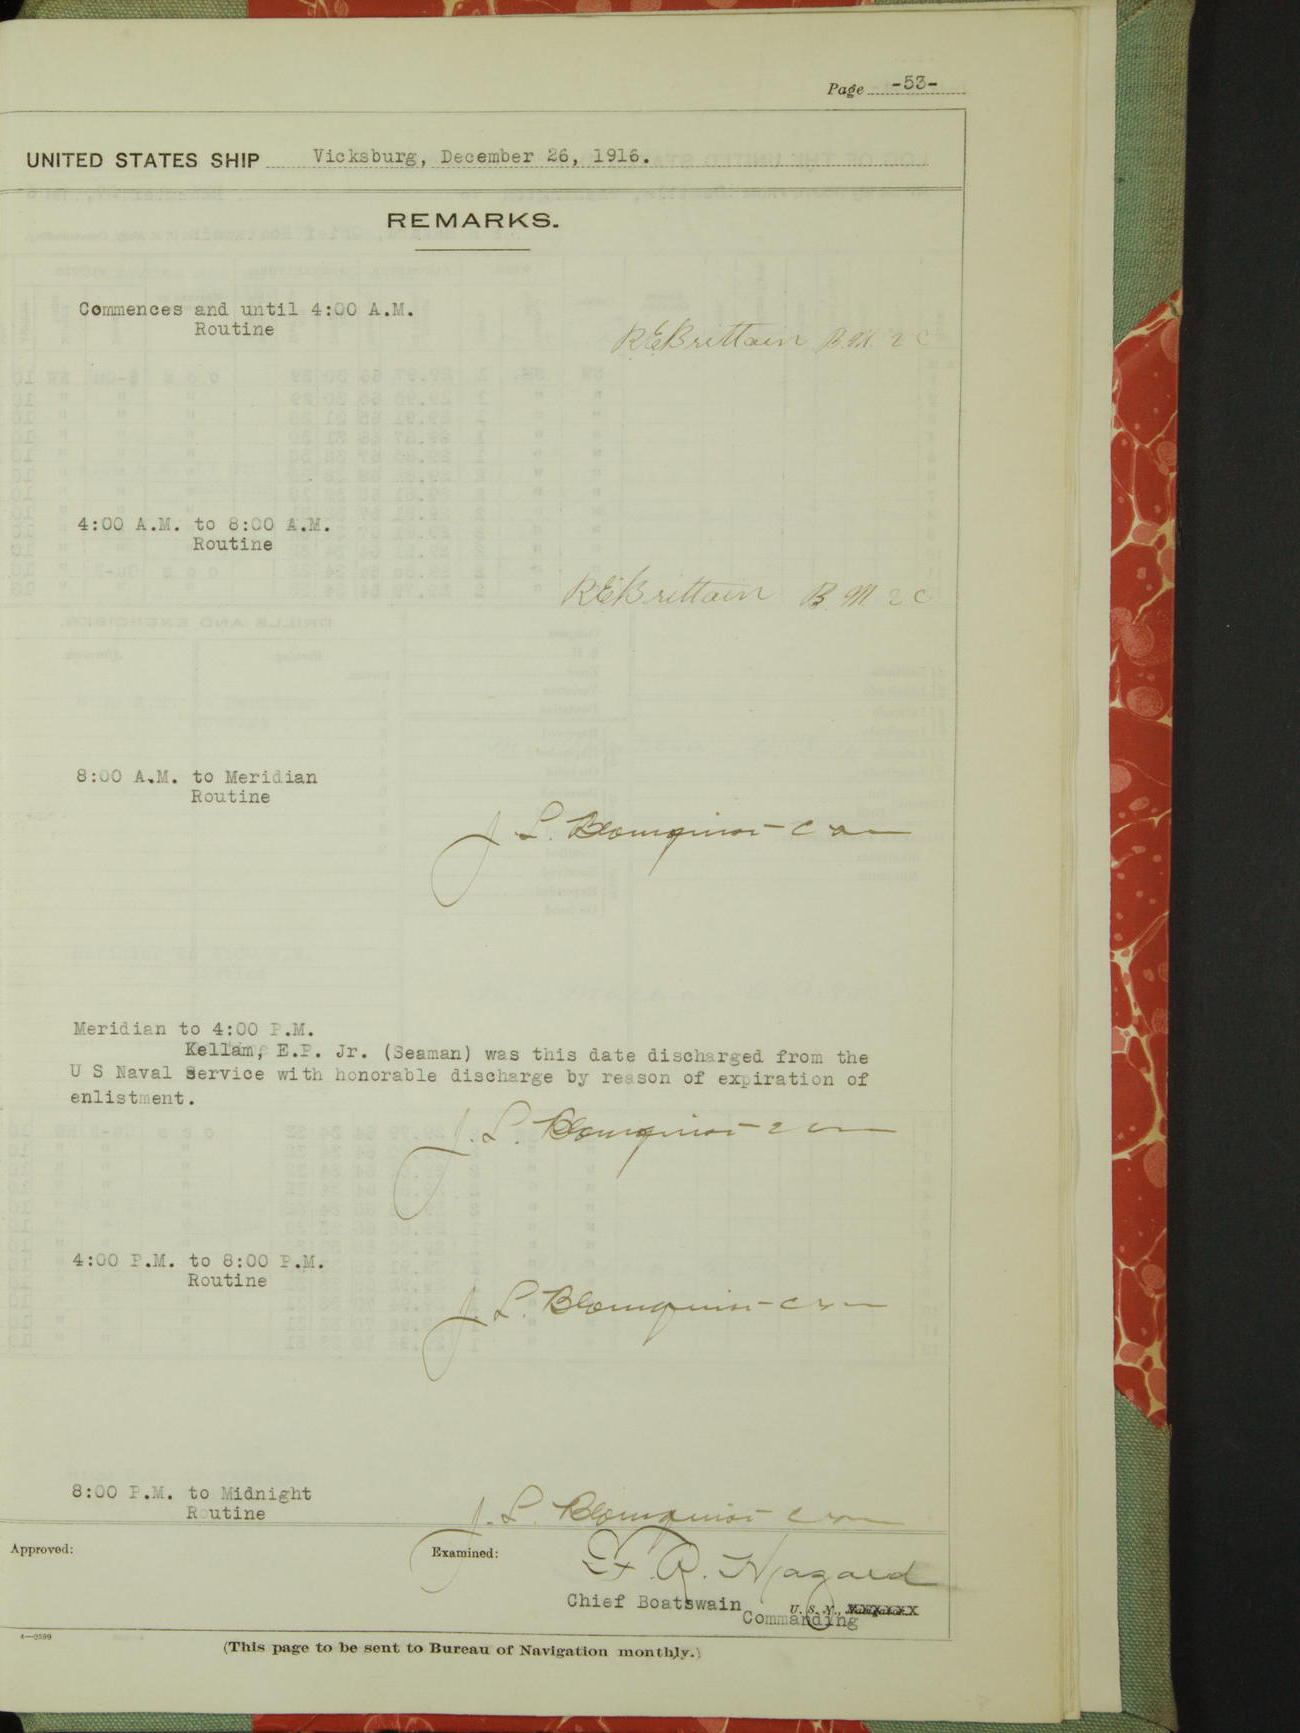 Page -53-
UNITED STATES SHIP Vicksburg, December 26, 1916.
REMARKS.
Commences and until 4:00 A.M.
Routine
R.E.Brittain B.M. 2 C
4:00 A.M. to 8:00 A.M.
Routine
R.E.Brittain B.M 2 C
8:00 A.M. to Meridian
Routine
J. L. Blomquist
Meridian to 4:00 P.M.
Kellam, E.P. Jr. (Seaman) was this date discharged from the
U S Naval Service with honorable discharge by reason of expiration of
enlistment.
J. L. Blomquist
4:00 P.M. to 8:00 P.M.
Routine
J. L. Blomquist
8:00 P.M. to Midnight
Routine
J. L. Blomquist
Approved:
Examined:
R. Hazard
Chief Boatswain U. S. N.,
Commanding
4—2599
(This page to be sent to Bureau of Navigation monthly.)